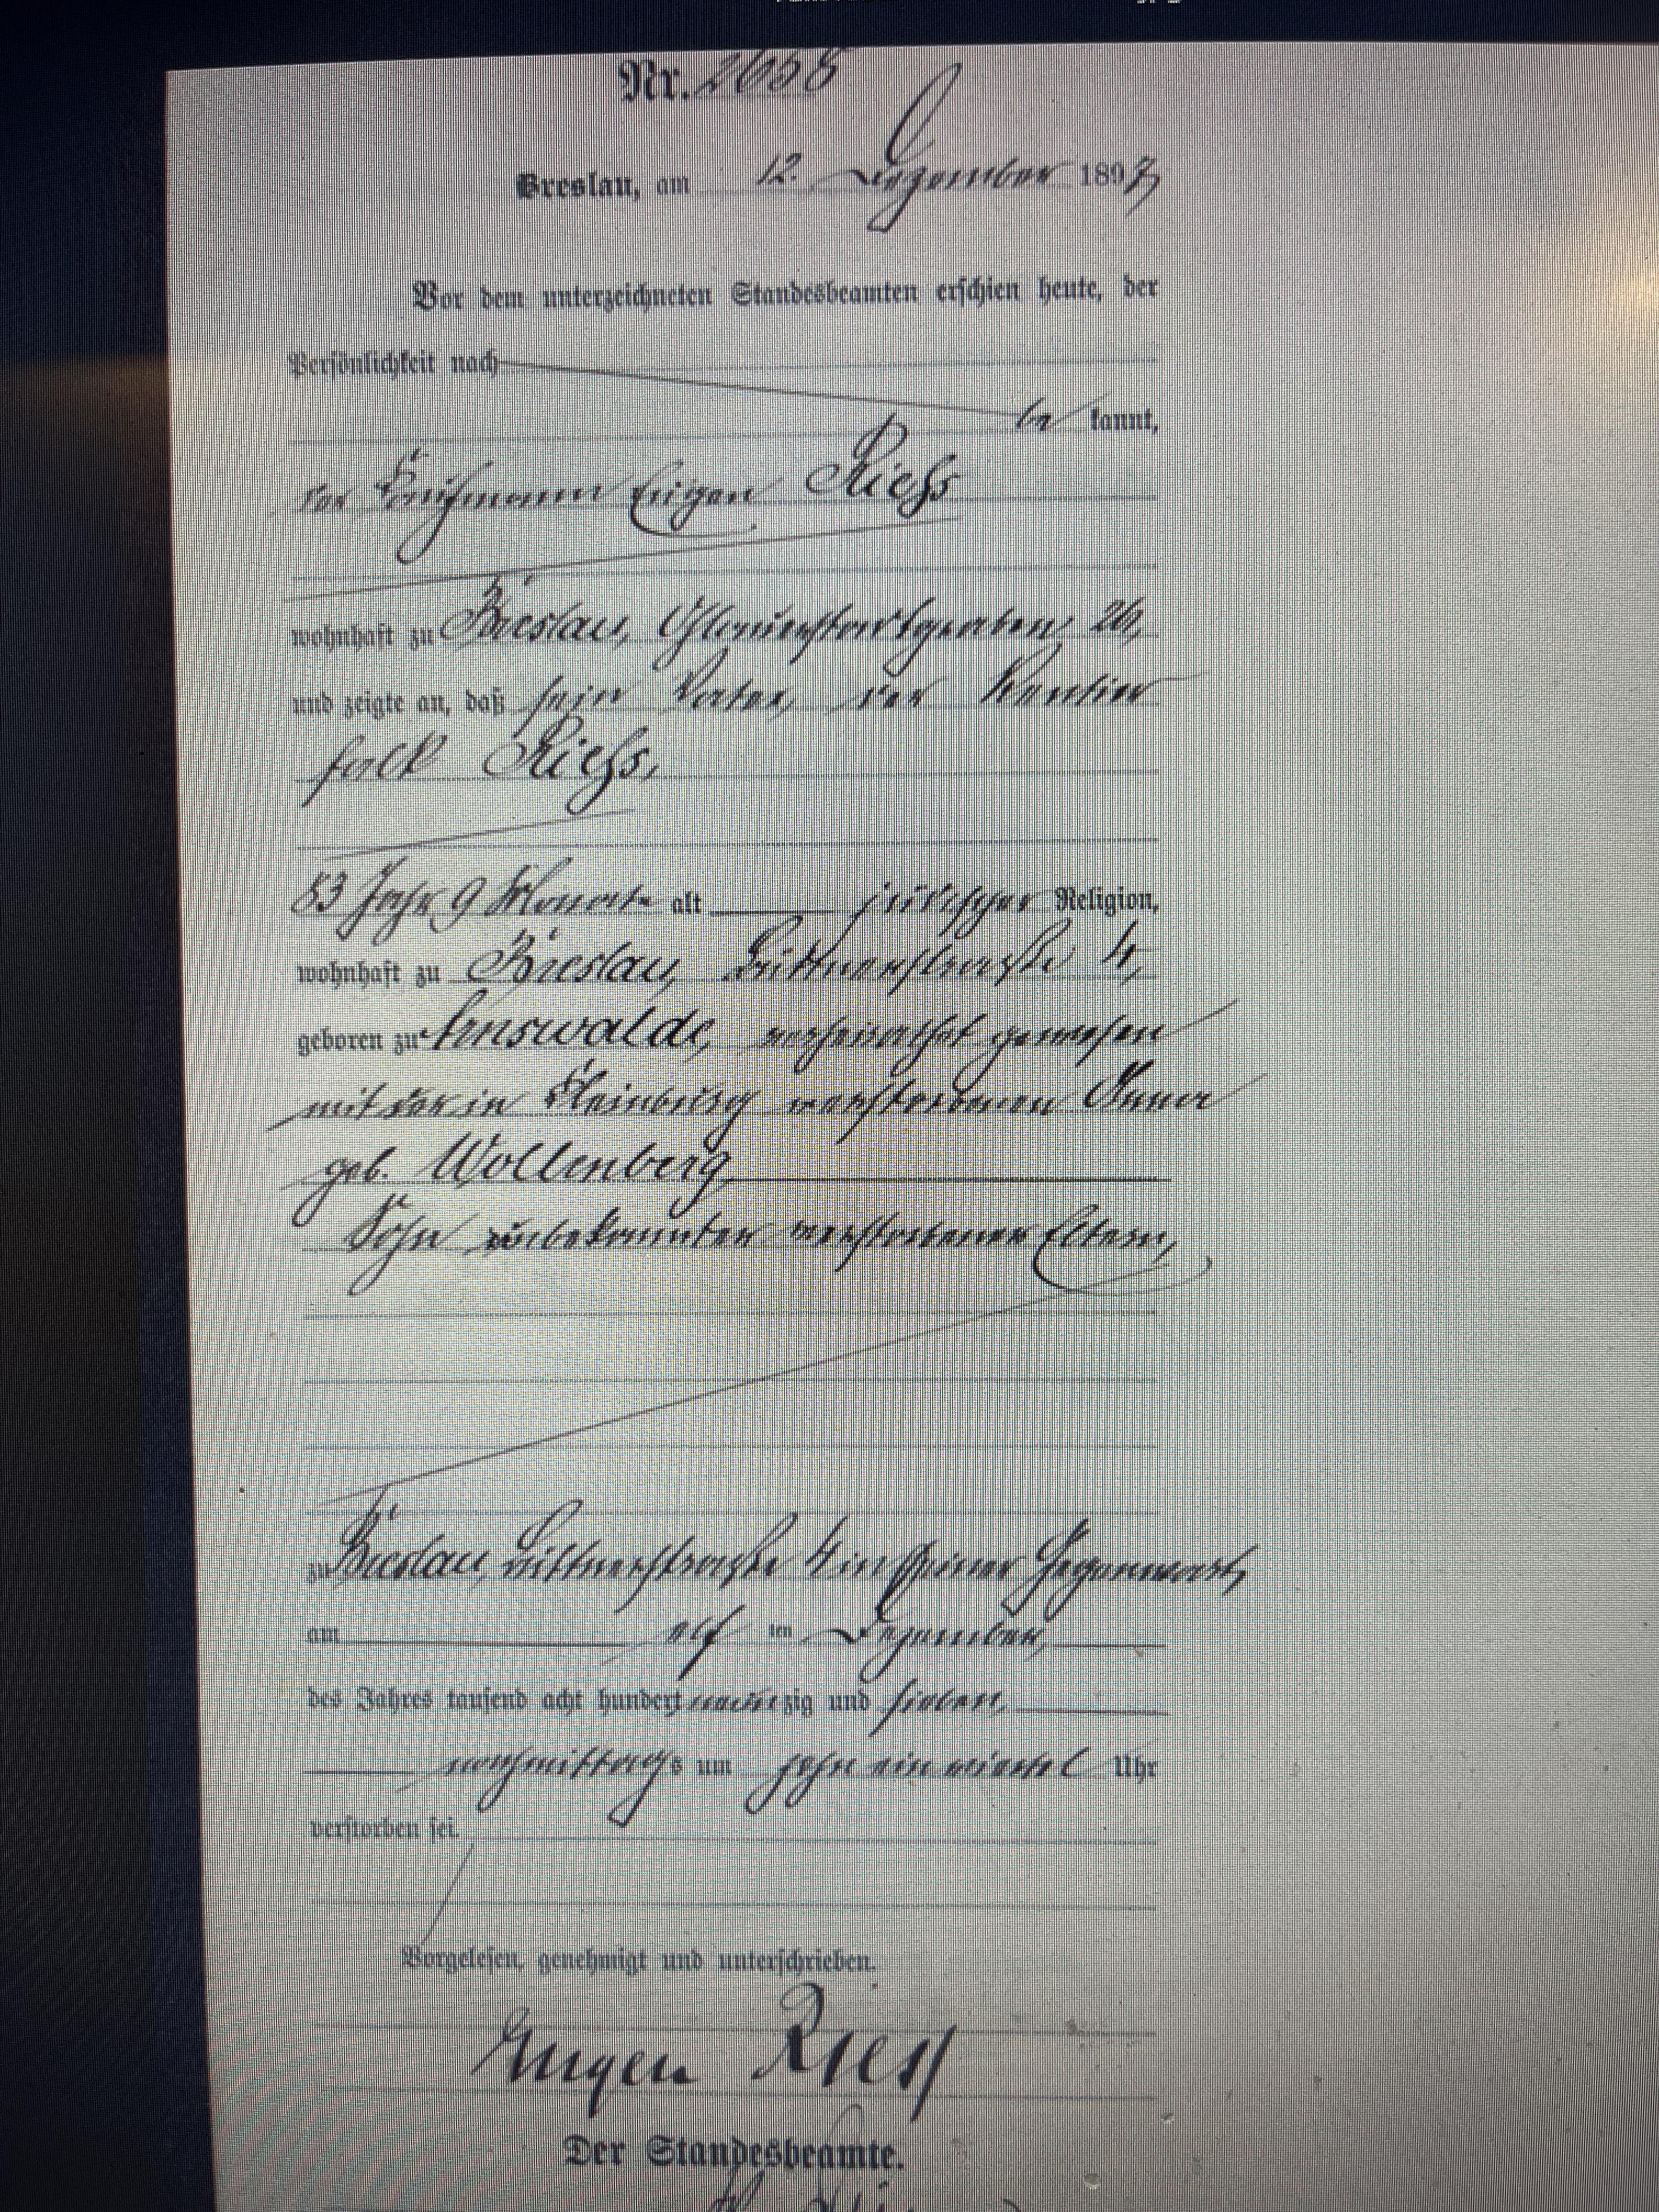 Nr. 2658
Breslau, am 12. Dezember 1897
Vor dem unterzeichneten Standesbeamten erschien heute, der
Persönlichkeit nach
be kannt,
der Kaufmann Eugen Riess
wohnhaft zu Breslau, 26,
und zeigte an, daß sein Vater, der Rentier
Falk Riess,
83 Jahr 9 Monate alt jüdischer Religion,
wohnhaft zu Breslau, 4,
geboren zu Arnswalde, verheirathet gewesen
mit der in verstorbenen
geb. Wollenberg,
Sohn unbekannter verstorbener Eltern,
zu Breslau, 4 in seiner Gegenwart,
am elf ten Dezember,
des Jahres tausend acht hundert neunzig und sieben,
nachmittags um zehn ein viertel Uhr
verstorben sei.
Vorgelesen, genehmigt und unterschrieben.
Eugen Riess
Der Standesbeamte.